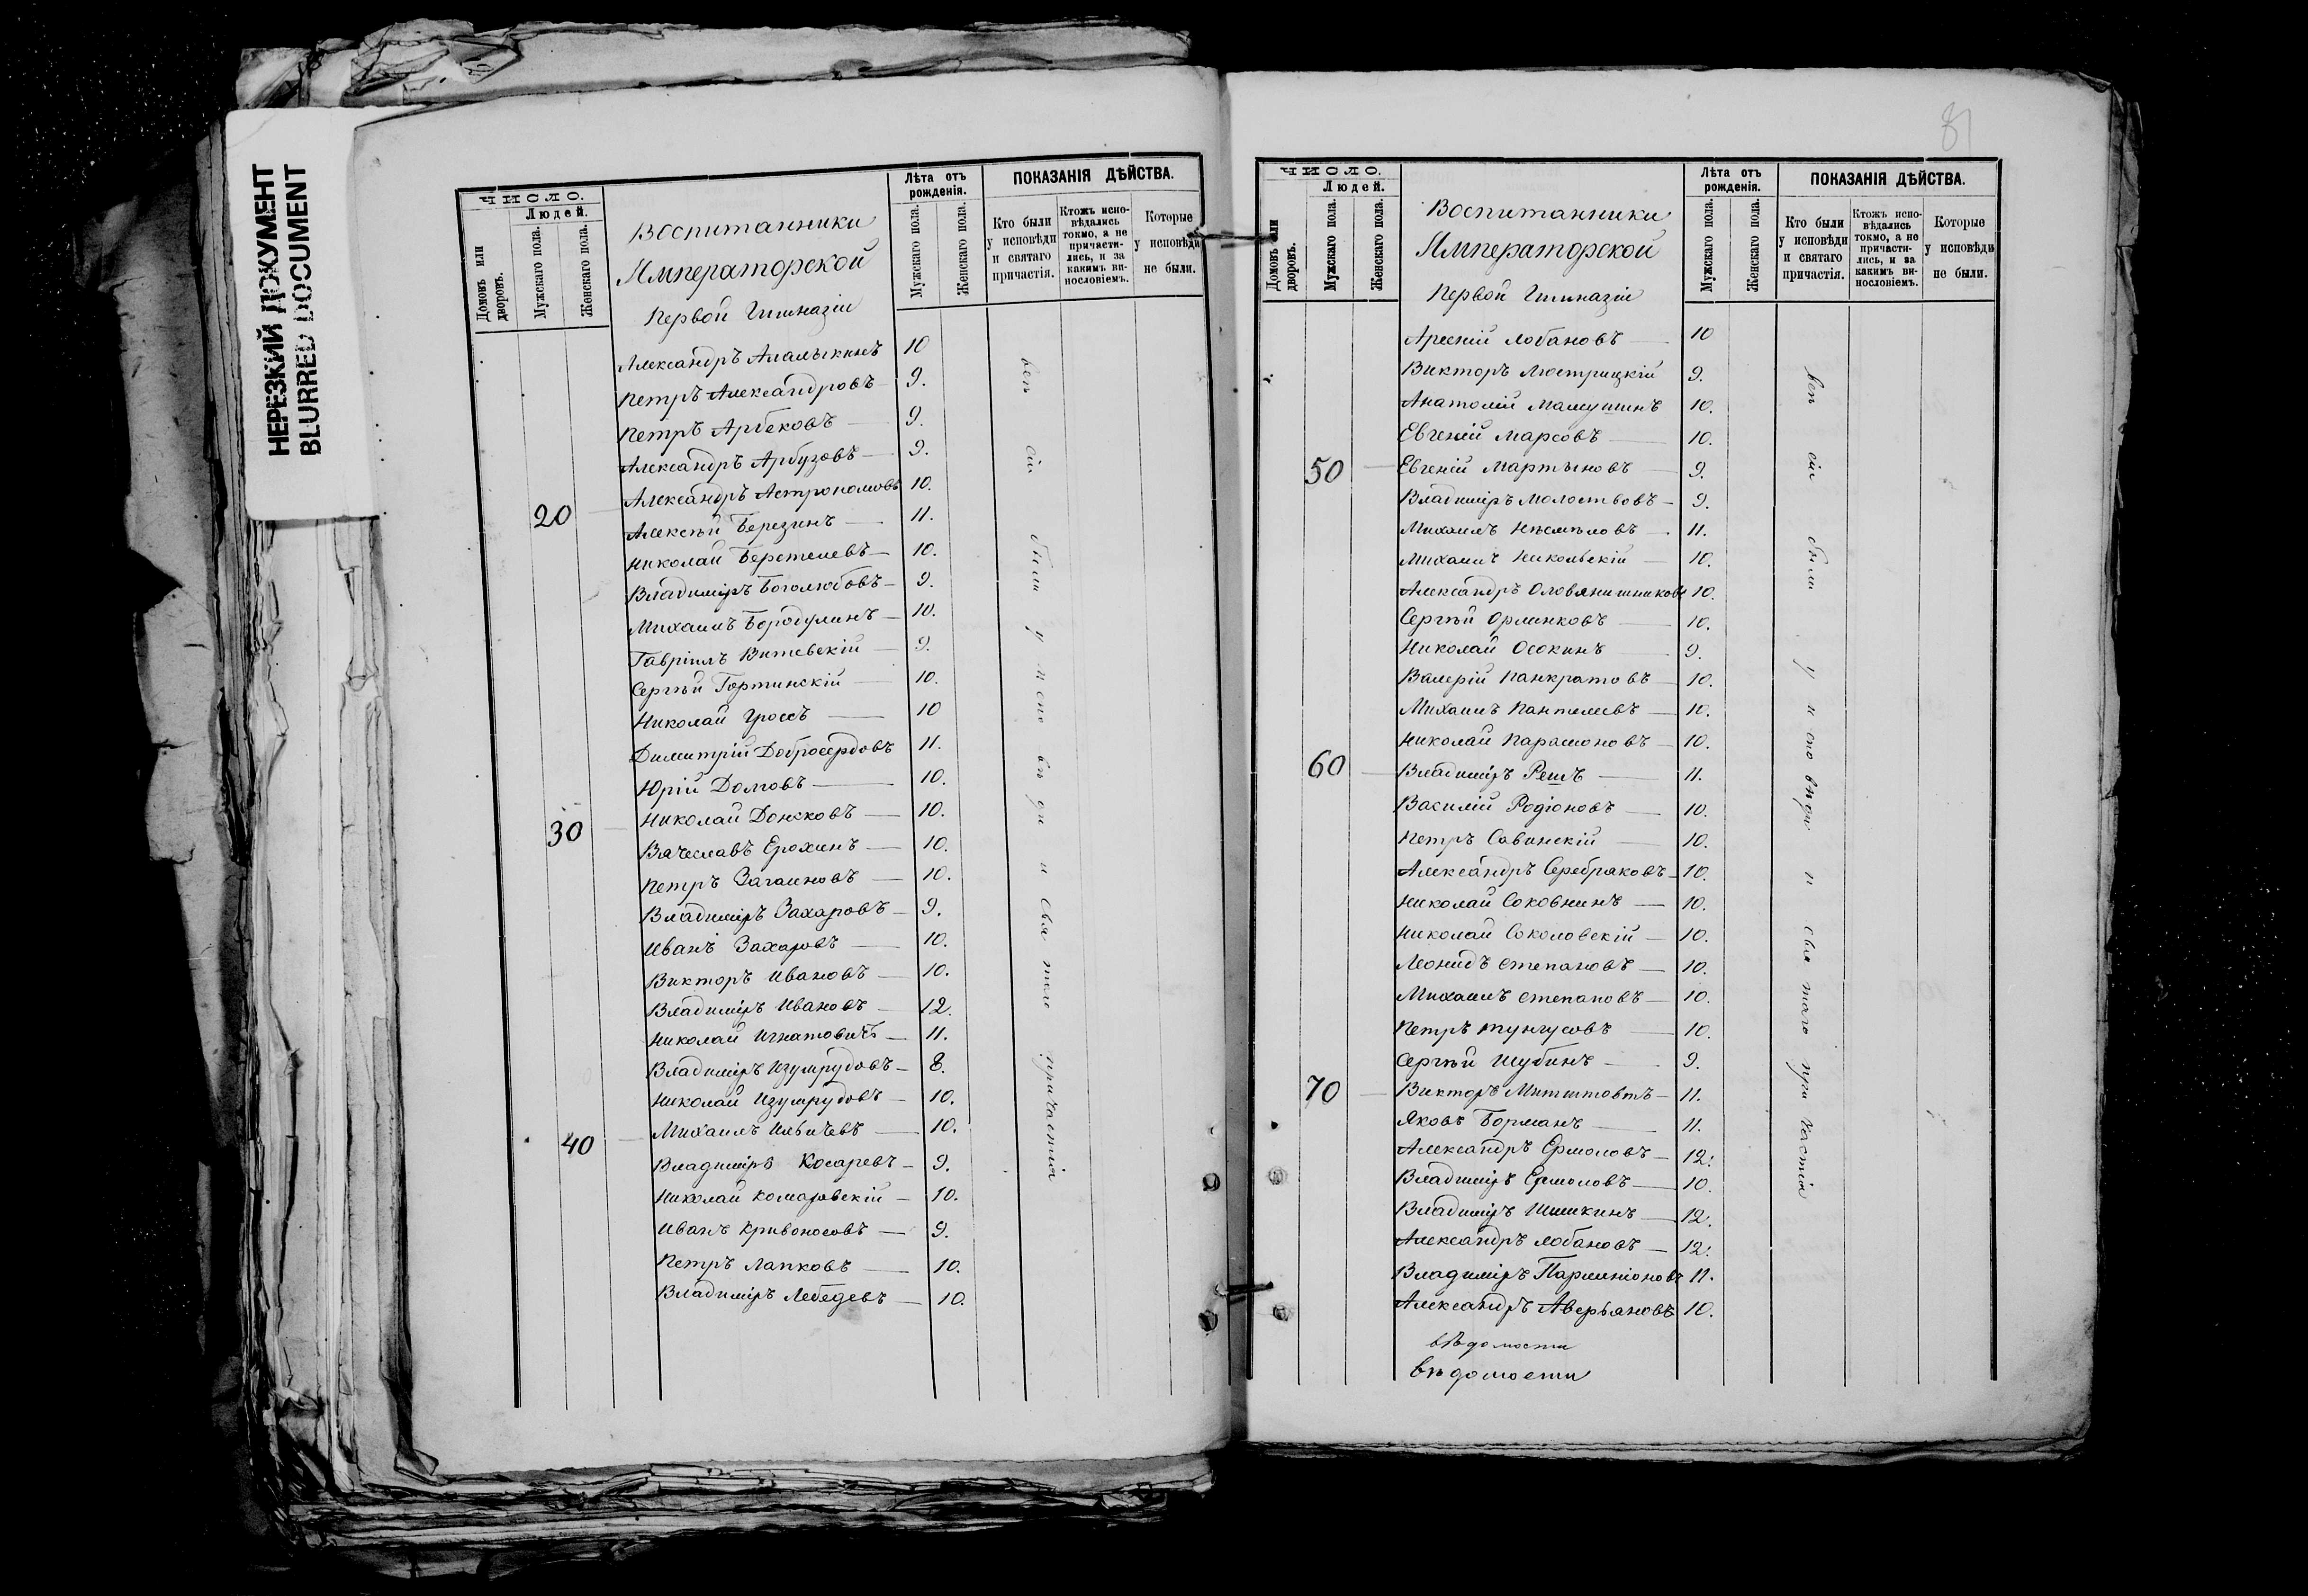 НЕРЕЗКИЙ ДОКУМЕНТ
BLURRED DOCUMENT
ЧИСЛО.
Людей.
Домовъ или дворовъ.
Мужскаго пола.
Женскаго пола.
Воспитанники
Императорской
Первой Гимназіи
Лѣта отъ рожденія.
Мужскаго пола.
Женскаго пола.
ПОКАЗАНІЯ ДѢЙСТВА.
Кто были у исповѣди и святаго причастія.
Ктожъ исповѣдались токмо, а не причастились, и за какимъ винословіемъ.
Которые у исповѣди не были.
Александръ Аламыкинъ 10
Петръ Александровъ 9.
Петръ Арбековъ 9.
Александръ Арбузовъ 9.
Александръ Астрономовъ 10.
20 Алексѣй Березинъ 11.
Николай Берстелевъ 10.
Владиміръ Боголюбовъ 9.
Михаилъ Бородулинъ 10.
Гавріилъ Витевскій 9.
Сергѣй Гортинскій 10.
Николай Гроссъ 10
Димитрій Добросердовъ 11.
Юрій Домовъ 10.
30 Николай Донсковъ 10.
Вячеславъ Ерохинъ 10.
Петръ Загаиновъ 10.
Владиміръ Захаровъ 9.
Иванъ Захаровъ 10.
Викторъ Ивановъ 10.
Владиміръ Ивановъ 12.
Николай Игнатовичъ 11.
Владиміръ Изумрудовъ 8.
Николай Изумрудовъ 10.
40 Михаилъ Ильичевъ 10.
Владиміръ Косаревъ 9.
Николай Комаровскій 10.
Иванъ Кривоносовъ 9.
Петръ Лапковъ 10.
Владиміръ Лебедевъ 10.
всѣ сіи были у исповѣди и святаго причастія
81
ЧИСЛО.
Людей.
Домовъ или дворовъ.
Мужскаго пола.
Женскаго пола.
Воспитанники
Императорской
Первой Гимназіи
Лѣта отъ рожденія.
Мужскаго пола.
Женскаго пола.
ПОКАЗАНІЯ ДѢЙСТВА.
Кто были у исповѣди и святаго причастія.
Ктожъ исповѣдались токмо, а не причастились, и за какимъ винословіемъ.
Которые у исповѣди не были.
Арсеній Лобановъ 10
Викторъ Люстрицкій 9.
Анатолій Мамушинъ 10.
Евгеній Марсовъ 10.
50 Евгеній Мартыновъ 9.
Владиміръ Молоствовъ 9.
Михаилъ Несмѣловъ 11.
Михаилъ Никольскій 10.
Александръ Оловянишниковъ 10.
Сергѣй Орлинковъ 10.
Николай Осокинъ 9.
Валерій Панкратовъ 10.
Михаилъ Пантелеевъ 10.
Николай Парамоновъ 10.
60 Владиміръ Решъ 11.
Василій Родіоновъ 10.
Петръ Савинскій 10.
Александръ Серебряковъ 10.
Николай Соковнинъ 10.
Николай Соколовскій 10.
Леонидъ Степановъ 10.
Михаилъ Степановъ 10.
Петръ Тунгусовъ 10.
Сергѣй Шубинъ 9.
70 Викторъ Миштовтъ 11.
Яковъ Борманъ 11.
Александръ Ермоловъ 12.
Владиміръ Ермоловъ 10.
Владиміръ Шишкинъ 12.
Александръ Лобановъ 12.
Владиміръ Парменіоновъ 11.
Александръ Аверьяновъ 10.
всѣ сіи были у исповѣди и святаго причастія
вѣдомости
вѣдомости